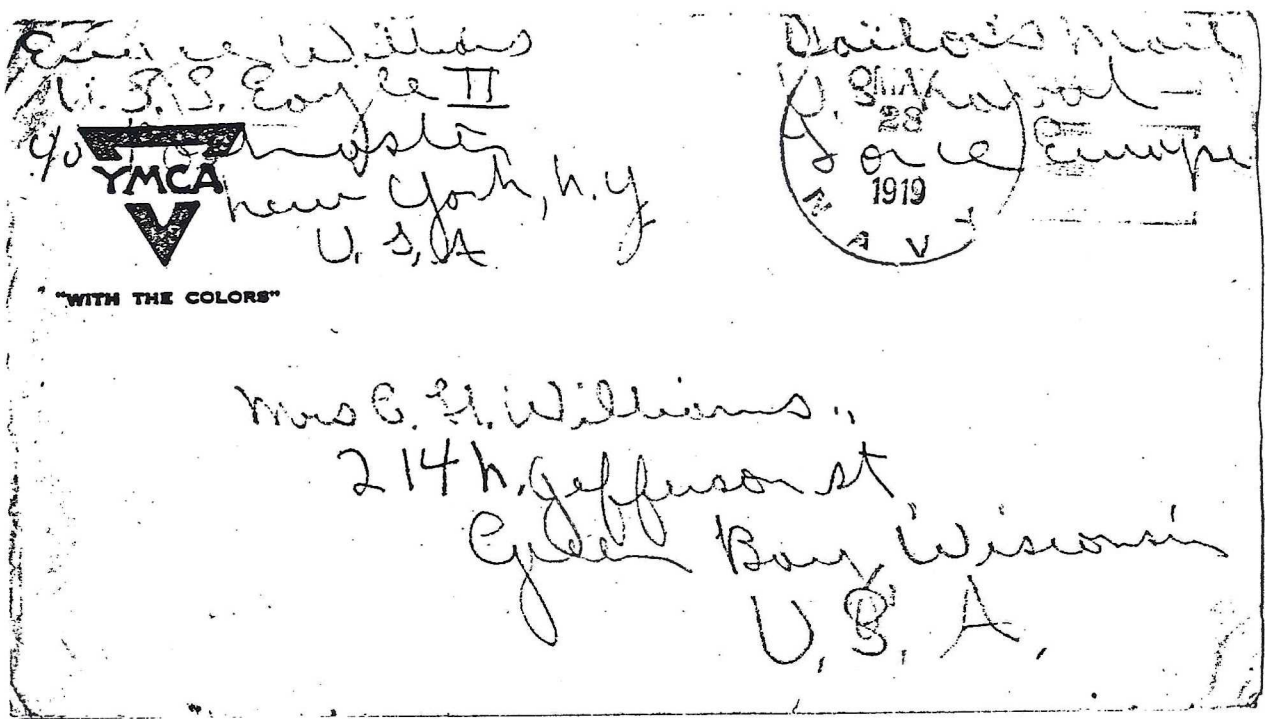 Williams
U.S.S. Eagle II
c/o Postmaster
New York, N.Y
U.S.A
YMCA
"WITH THE COLORS"
Sailor's Mail
U.S. Naval
Force Europe
28
1919
NAVY
Mrs C. H. Williams.,
214 N. Jefferson st
Green Bay, Wisconsin
U.S.A.